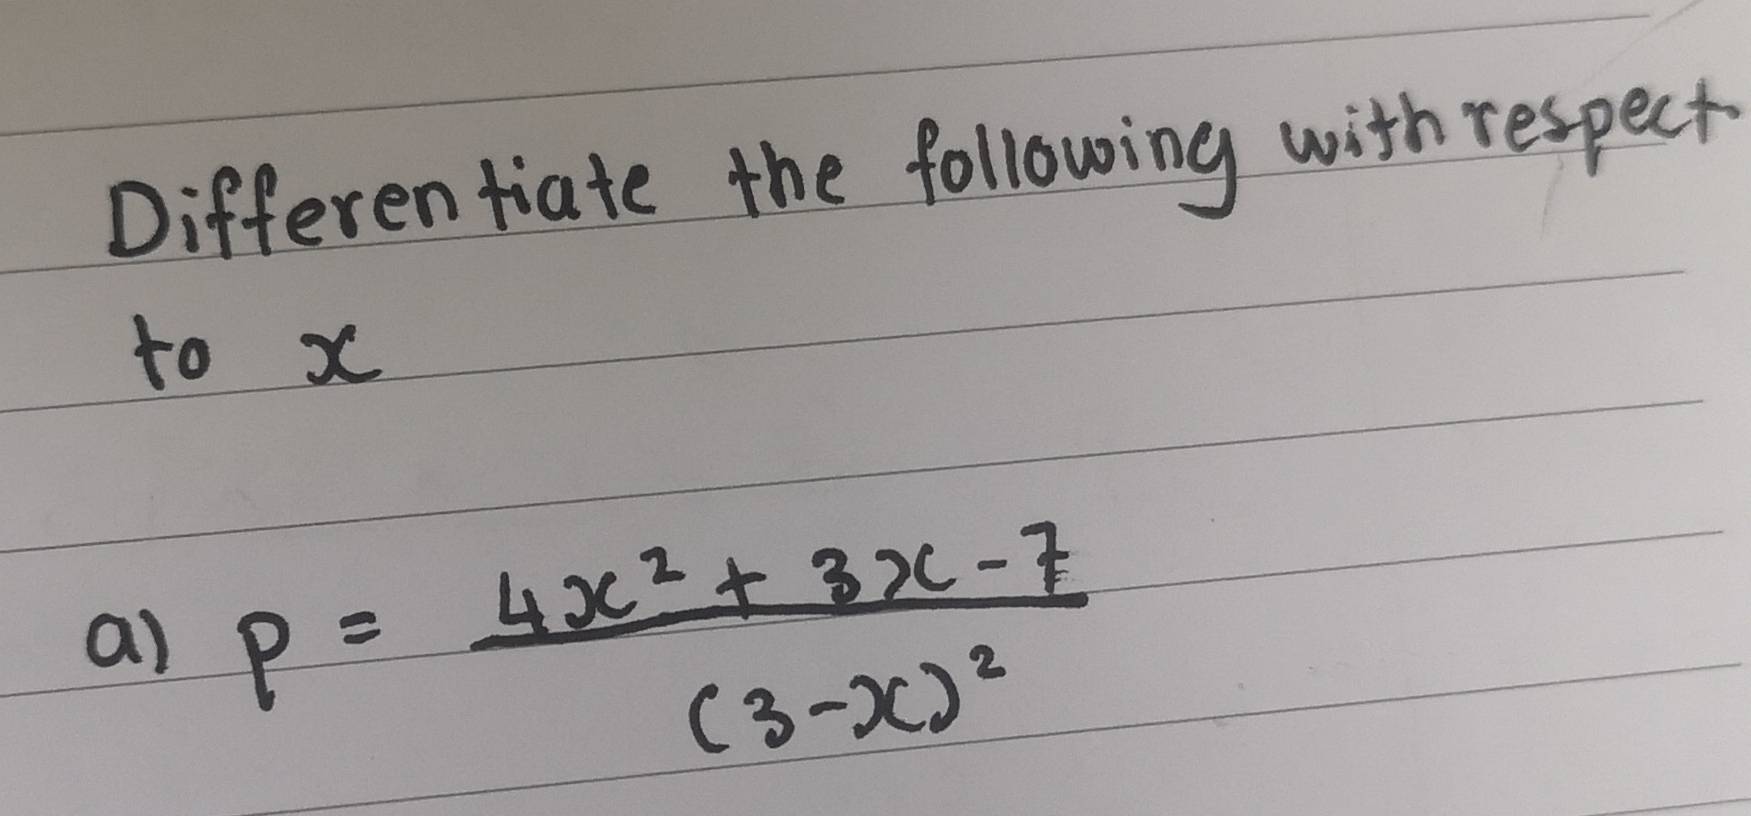 Differentiate the following with respect
to x
a) p = \frac{4x^2 + 3x - 7}{(3-x)^2}